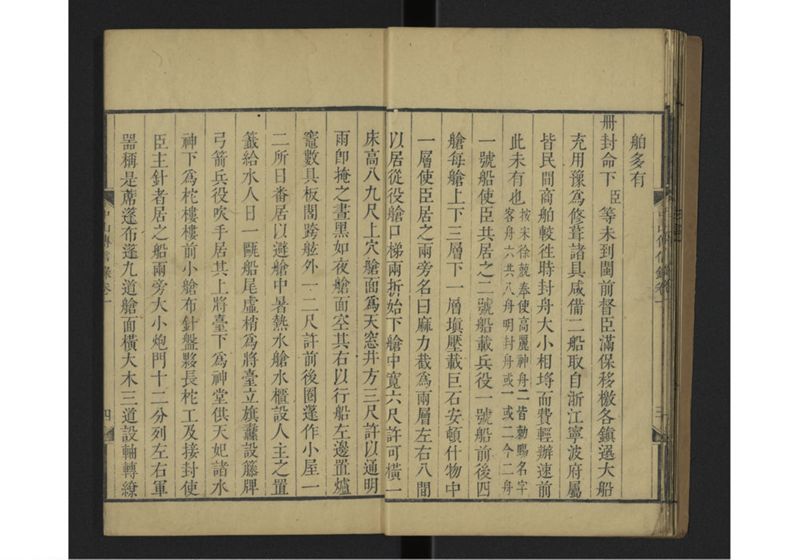 舶多有
冊封命下臣等未到閩前督臣滿保移檄各鎮選大船
充用豫爲修葺諸具咸備二船取自浙江寧波府屬
皆民間商舶較徃時封舟大小相埓而費輕辦速前
此未有也按宋徐兢奉使高麗神舟二皆勅賜名字
客舟六共八舟明封舟或一或二今二舟
一號船使臣共居之二號船載兵役一號船前後四
艙每艙上下三層下一層塡壓載巨石安頓什物中
一層使臣居之兩旁名曰麻力截爲兩層左右八間
以居從役艙口梯兩折始下艙中寬六尺許可橫一
床高八九尺上穴艙面爲天窓井方三尺許以通明
雨卽掩之晝黑如夜艙面空其右以行船左邊置爐
竈數具板閣跨舷外一二尺許前後圈蓬作小屋一
二所日番居以避艙中暑熱水艙水櫃設人主之置
籤給水人日一甌船尾虛梢爲將臺立旗纛設籐牌
弓箭兵役吹手居其上將臺下爲神堂供天妃諸水
神下爲柁樓樓前小艙布針盤夥長柁工及接封使
臣主針者居之船兩旁大小炮門十二分列左右軍
器稱是蓆篷布篷九道艙面橫大木三道設軸轉繚
中山傳信錄卷一
四